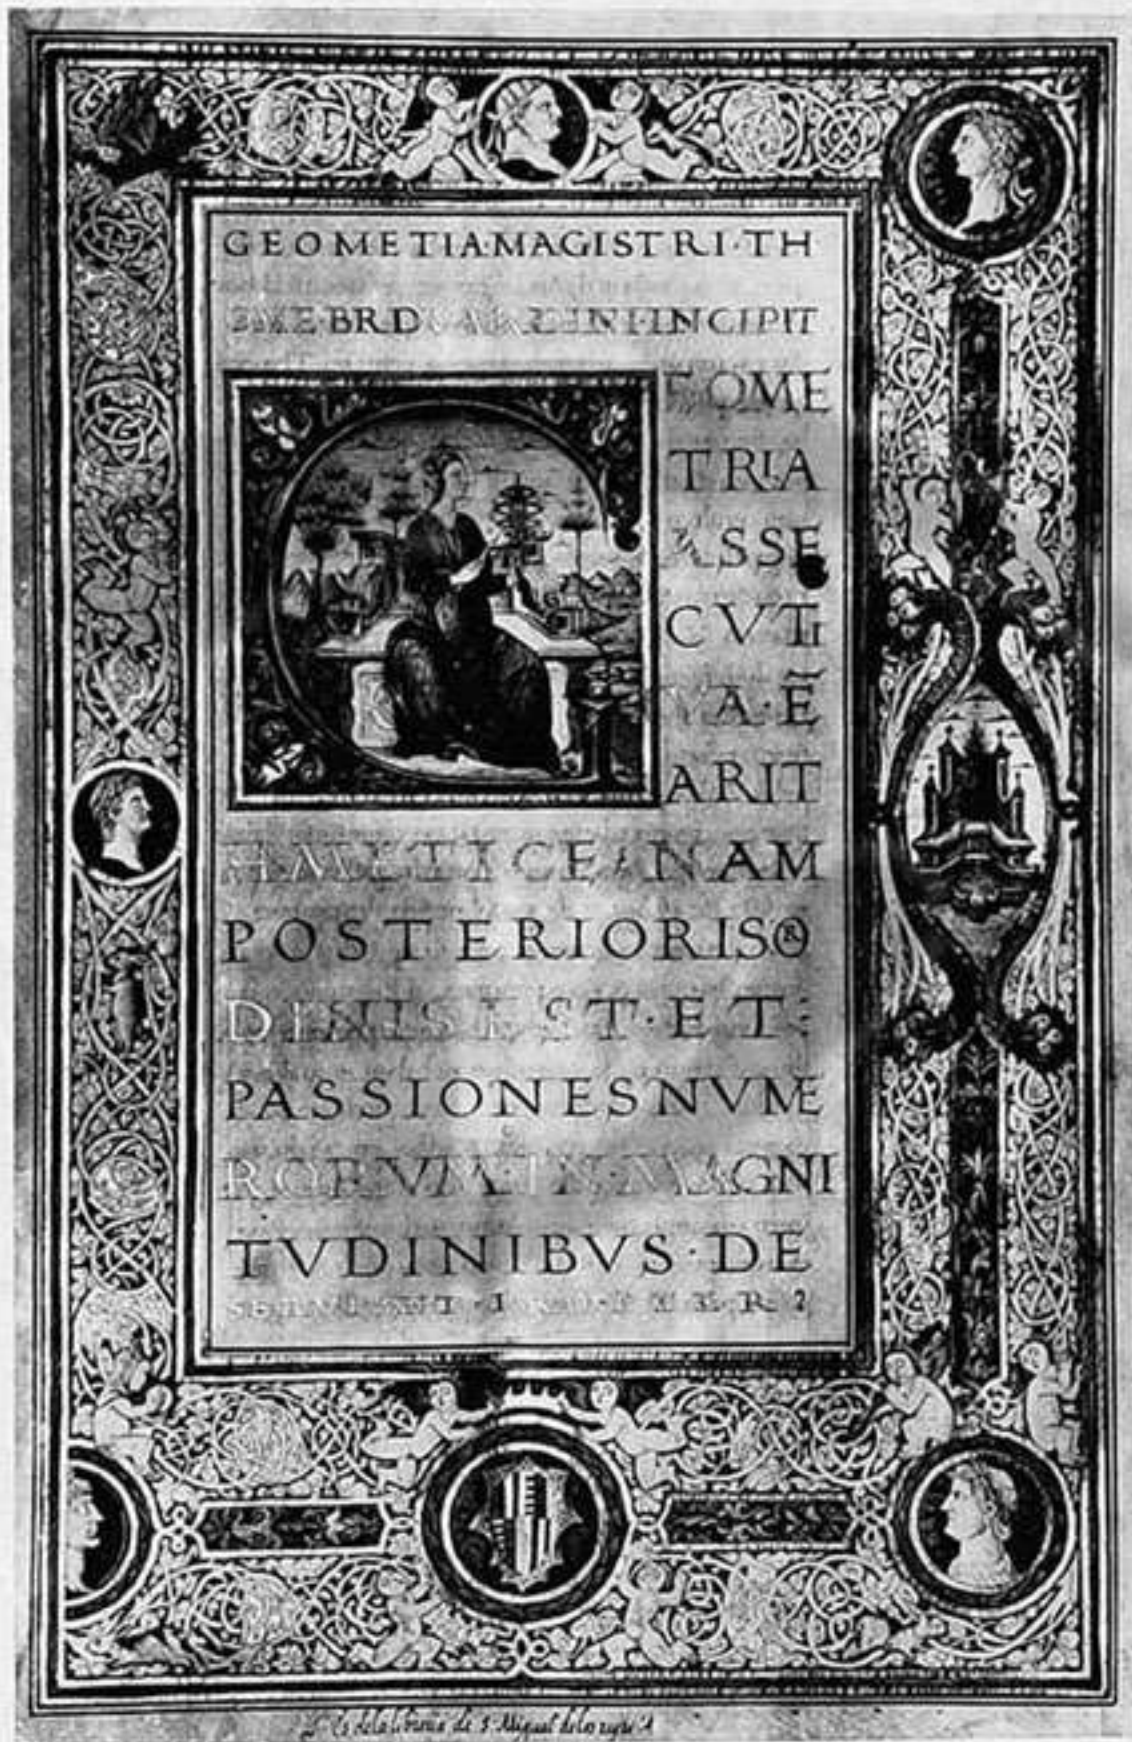 GEOMETIA·MAGISTRI·TH
BRD INCIPIT
EOME
TRIA
ASSE
CVTI
VA·Ē
ARIT
HMETICE·NAM
POSTERIORIS OR
DINIS EST·ET:
PASSIONES NVME
RORVM·IN·MAGNI
TVDINIBVS·DE
Es de la libreria de S. Miguel de los reyes